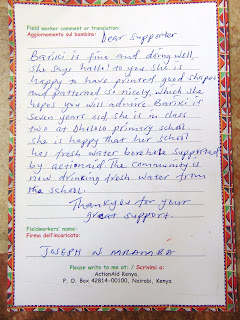 Field worker comment or translation:
Aggiornamento sul bambino:
Dear Supporter
Bariki is fine and doing well,
She says hallo! to you She is
happy to have printed good shapes
and patterned so nicely, which she
hopes you will admire. Bariki is
Seven years old. she is in class
two at primary school.
She is happy that her school
has fresh water borehole supported
by actionaid. The community is
now drinking fresh water from
the school.
Thankyou for your
great support.
Fieldworkers' name:
Firma dell'incaricato:
JOSEPH N
Please write to me at: / Scrivimi a:
ActionAid Kenya,
P. O. Box 42814-00100, Nairobi, Kenya